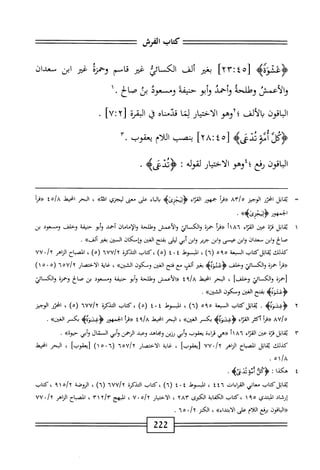 كتاب الفرش
﴿غِشْوَةً﴾ [٢٣:٤٥] بغير ألف الكسائيُّ غير قاسم وحمزةُ غير ابن سعدان
والأعمشُ وطلحةُ وأحمدُ وأبو حنيفة ومسعودُ بنُ صالح .١
الباقون بالألف ؛٢وهو الاختيار لِمَا قدّمناه في البقرة [٧:٢] .
﴿كُلَّ أُمَّةٍ تُدْعَى﴾ [٢٨:٤٥] بنصب اللام يعقوب .٣
الباقون رفع ؛٤وهو الاختيار لقوله : ﴿تُدْعَى﴾ .
= يقابل المحرّر الوجيز ٨٣/٥ «قرأ جمهور القرّاء ﴿لِيَجْزِيَ﴾ بالياء على معنى ليجزي الله» ، البحر المحيط ٤٥/٨ «قرأ
الجمهور ﴿لِيَجْزِيَ﴾» .
١ يقابل قرّة عين القرّاء ١٨٦أ «قرأ حمزة والكسائيّ والأعمش وطلحة والإمامان أحمد وأبو حنيفة وخلف ومسعود بن
صالح وابن سعدان وابن عيسى وابن جرير وابن أبي ليلى بفتح الغين وإسكان السين بغير ألف» .
كذلك يقابل كتاب السبعة ٥٩٥ (٦) ، المبسوط ٤٠٤ (٥) ، كتاب التذكرة ٦٧٧/٢ (٥) ، المصباح الزاهر ٧٧٠/٢
«قرأ حمزة والكسائيّ وخلف ﴿غَشْوَةً﴾ بغير ألفٍ مع فتح الغين وسكون الشين» ، غاية الاختصار ٦٥٧/٢ (١٥٠٥)
[حمزة والكسائيّ وخلف] ، البحر المحيط ٤٩/٨ «الأعمش وطلحة وأبو حنيفة ومسعود بن صالح وحمزة والكسائيّ
﴿غَشْوَةً﴾ بفتح الغين وسكون الشين» .
٢ ﴿غِشَوَةً﴾ . يقابل كتاب السبعة ٥٩٥ (٦) ، المبسوط ٤٠٤ (٥) ، كتاب التذكرة ٦٧٧/٢ (٥) ، المحرّر الوجيز
٨٧/٥ «قرأ أكثر القرّاء ﴿غِشَوَةً﴾ بكسر الغين» ، البحر المحيط ٤٩/٨ «قرأ الجمهور ﴿غِشَوَةً﴾ بكسر الغين» .
٣ يقابل قرّة عين القرّاء ١٨٦أ «هي قراءة يعقوب وأبي رزين ومجاهد وعبد الرحمن وأبي السمّال وأبي حيوة» .
كذلك يقابل المصباح الزاهر ٧٧٠/٢ [يعقوب] ، غاية الاختصار ٦٥٧/٢ (١٥٠٦) [يعقوب] ، البحر المحيط
٥١/٨ .
٤ هكذا : ﴿كُلُّ أُمَّةٍ تُدْعَى﴾ .
يقابل كتاب معاني القراءات ٤٤٦ ، المبسوط ٤٠٤ (٦) ، كتاب التذكرة ٦٧٧/٢ (٦) ، الروضة ٩١٥/٢ ، كتاب
إرشاد المبتدي ١٩٥ ، كتاب الكفاية الكبرى ٢٨٣ ، الاختيار ٧٠٥/٢ ، المبهج ٣١٢/٣ ، المصباح الزاهر ٧٧٠/٢
«الباقون برفع اللام على الابتداء» ، الكنز ٦٥٠/٢ .
222